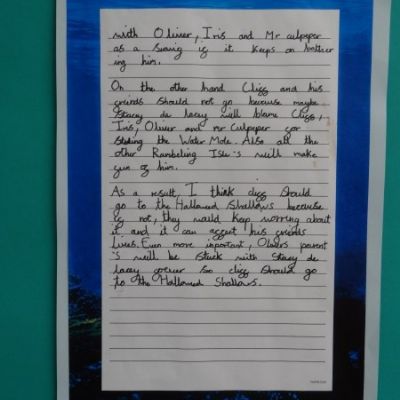 with Oliver, Iris and Mr culpeper
as a swing if it keeps on bother
ing him.
On the other hand Cligg and his
greinds should not go because maybe
Stacey de lacey will blame Cligg,
Iris, Oliver and mr Culpeper gor
the Water Mole. Also all the
other Rambeling Isle's will make
gun og him.
As a result, I think cligg should
go to the Hallowed Shallows because
ig not, they would keep worring about
it and it can aggect his greinds
lives. Even more important, Olivers parent
's will be stuck with Stacey de
lacey gorever so cligg should go
to the Hallowed Shallows.